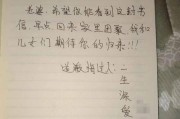 老婆,希望你能看到这封书
信,早点回来家里团聚,我和
儿女们期待您的归来!!!
一生深爱